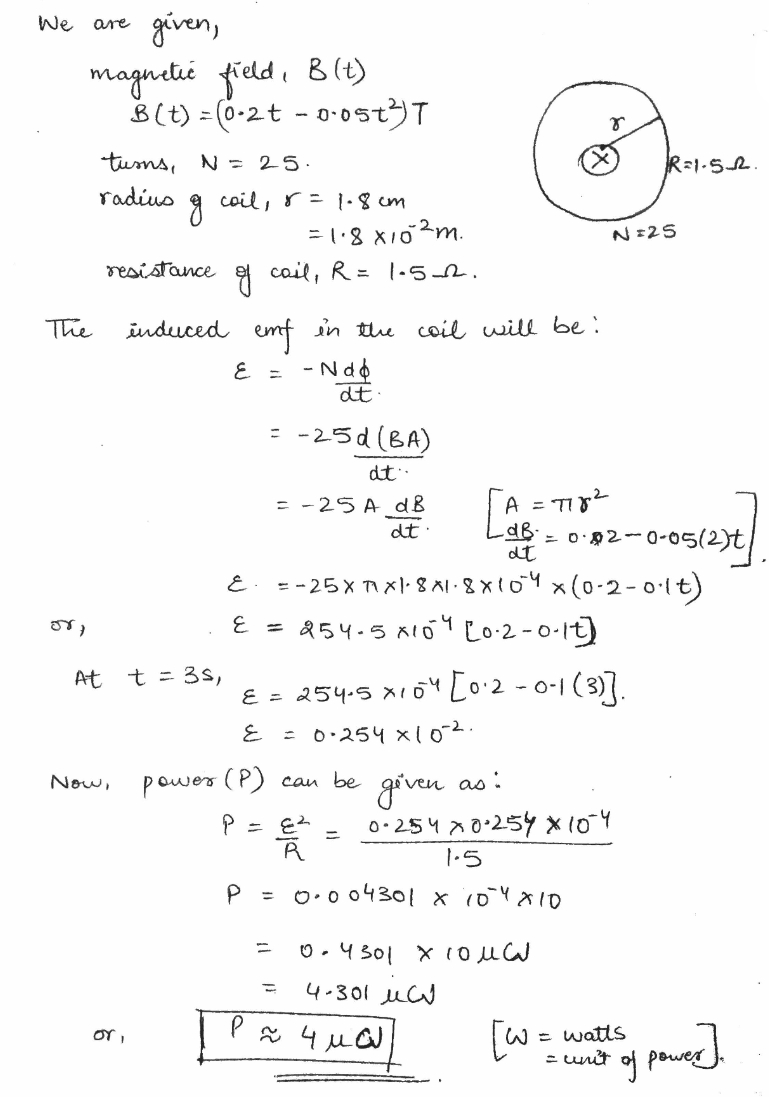 We are given,
magnetic field, B(t)
B(t) = (0.2t - 0.05t²)T
turns, N = 25.
radius of coil, r = 1.8 cm
= 1.8 x 10⁻² m.
resistance of coil, R = 1.5 Ω.
r
R=1.5 Ω.
N=25
The induced emf in the coil will be:
ε = -N dϕ/dt.
= -25 d(BA)/dt.
= -25 A dB/dt. [A = πr²
dB/dt = 0.02 - 0.05(2)t].
ε = -25 x π x 1.8 x 1.8 x 10⁻⁴ x (0.2 - 0.1t)
or, ε = 254.5 x 10⁻⁴ [0.2 - 0.1t]
At t = 3s, ε = 254.5 x 10⁻⁴ [0.2 - 0.1(3)].
ε = 0.254 x 10⁻².
Now, power(P) can be given as:
P = ε²/R = 0.254 x 0.254 x 10⁻⁴/1.5
P = 0.004301 x 10⁻⁴ x 10
= 0.4301 x 10 μW
= 4.301 μW
or, P ≈ 4 μW [W = watts
= unit of power].